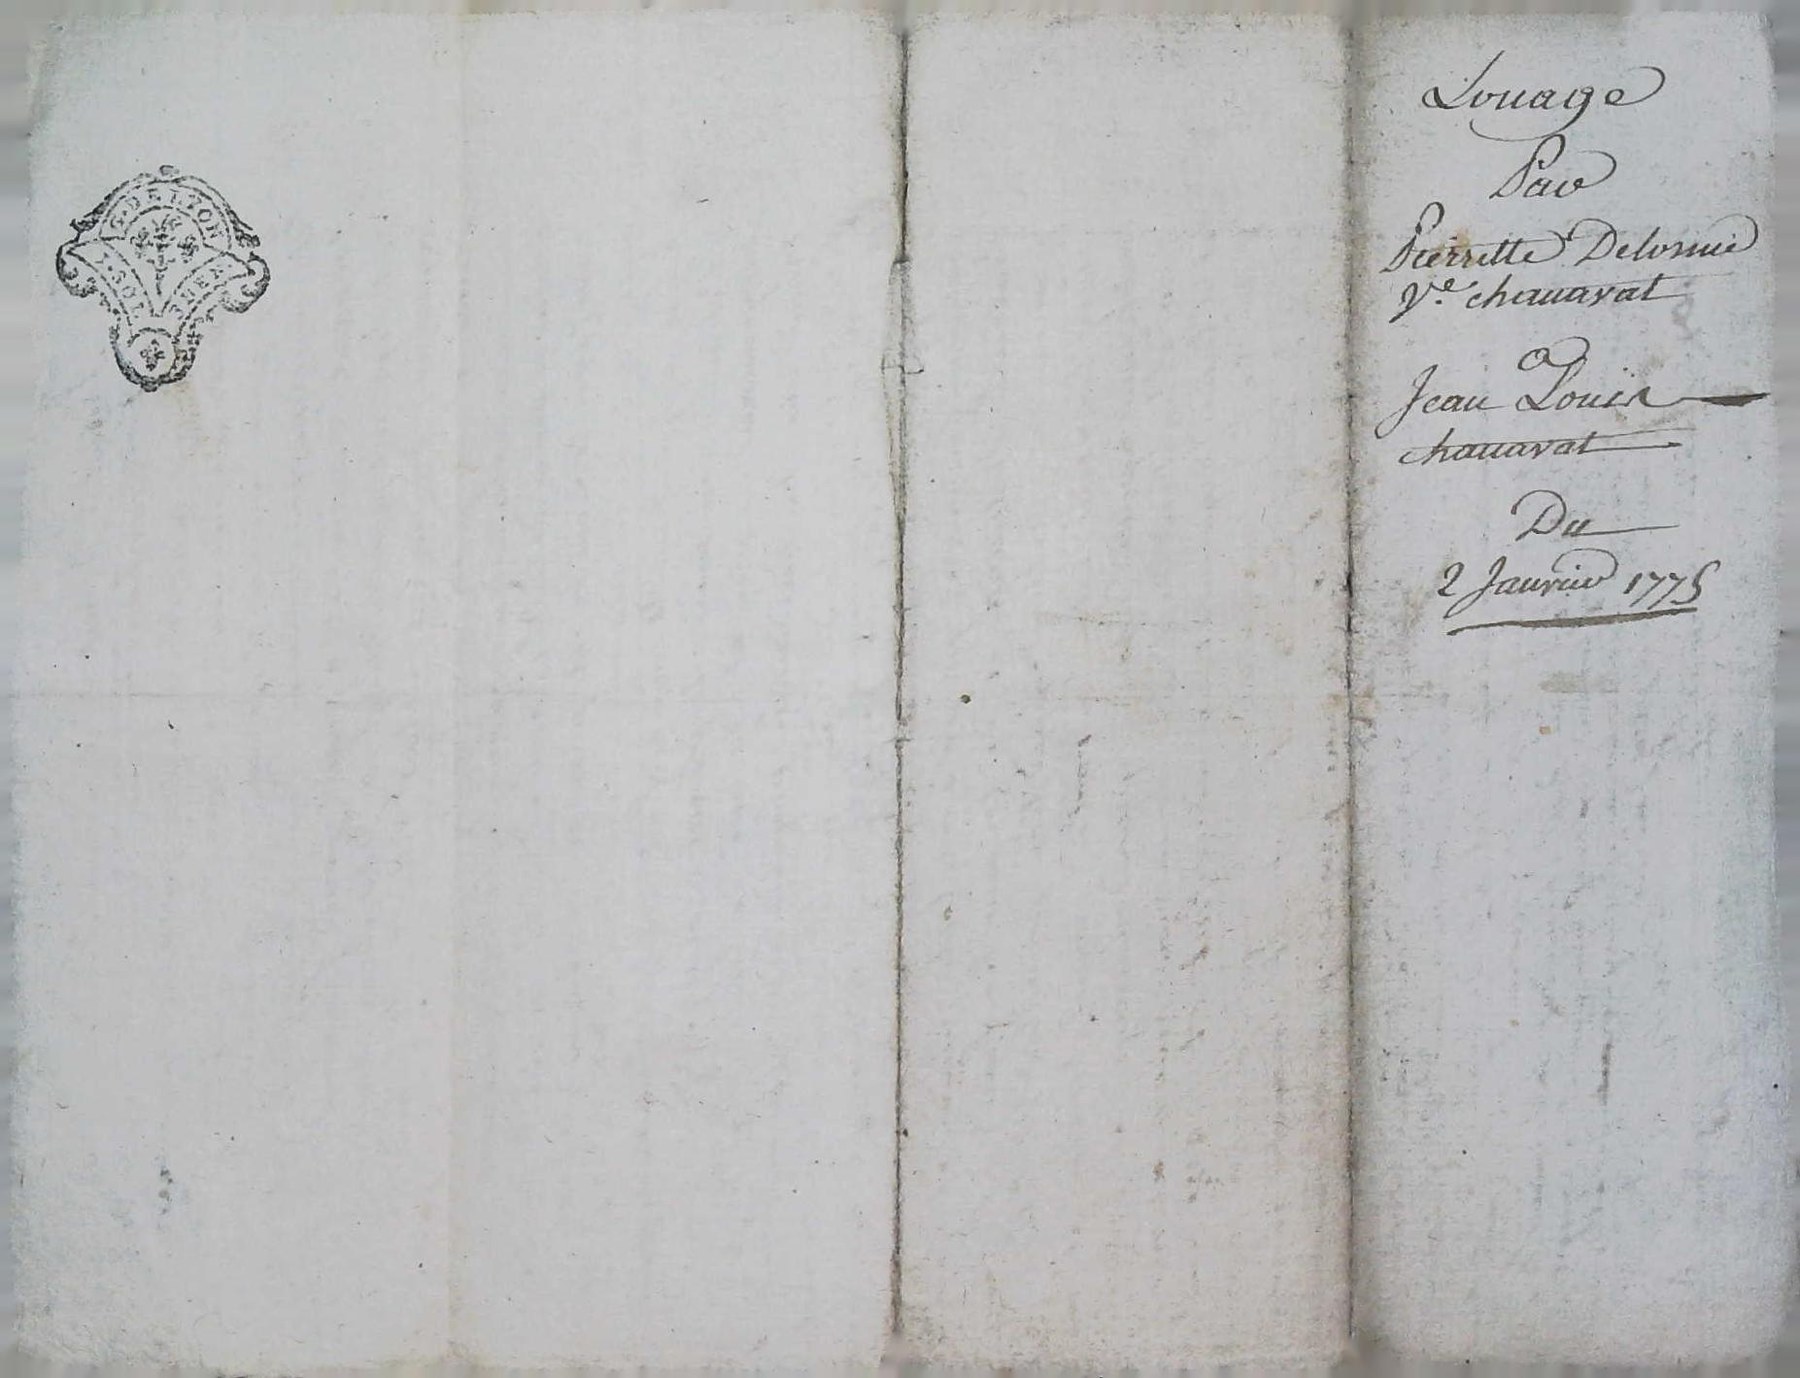 G. DE LYON
Louage
Par
Pierrette Delorme
Ve. chauavat
a
Jean Louis
chauavat
Du
2 Janvier 1775